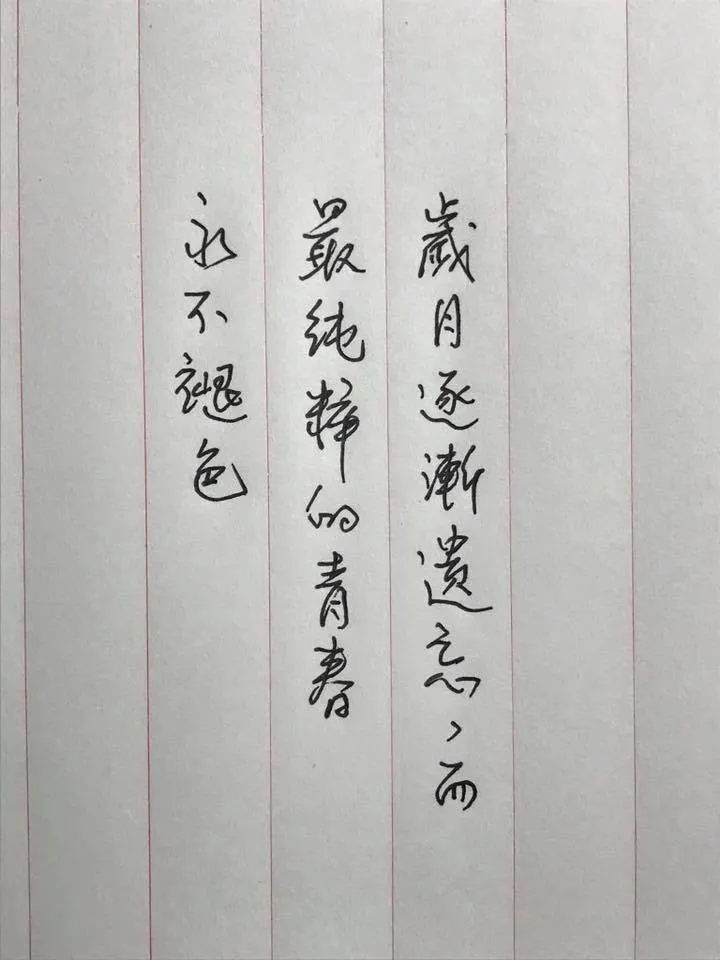 歲月逐漸遺忘，而
最純粹的青春
永不褪色